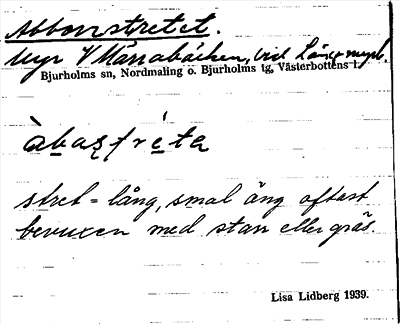 Abborrstretet.
Myr V Mårrabäcken, vid Långmyrb.
Bjurholms sn, Nordmaling o. Bjurholms tg, Västerbottens l.
àbastréta
stret = lång, smal äng oftast
bevuxen med starr eller gräs.
Lisa Lidberg 1939.